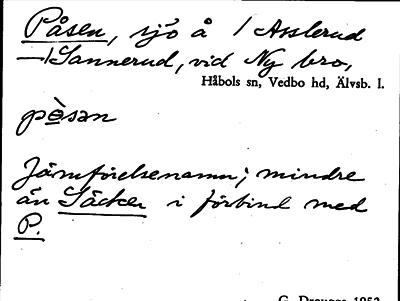 Påsen, sjö å / Asslerud
—/Sannerud, vid Ny bro,
Håbols sn, Vedbo hd, Älvsb. l.
pèsən
Jämförelsenamn; mindre
än Säcken i förbind med
P.